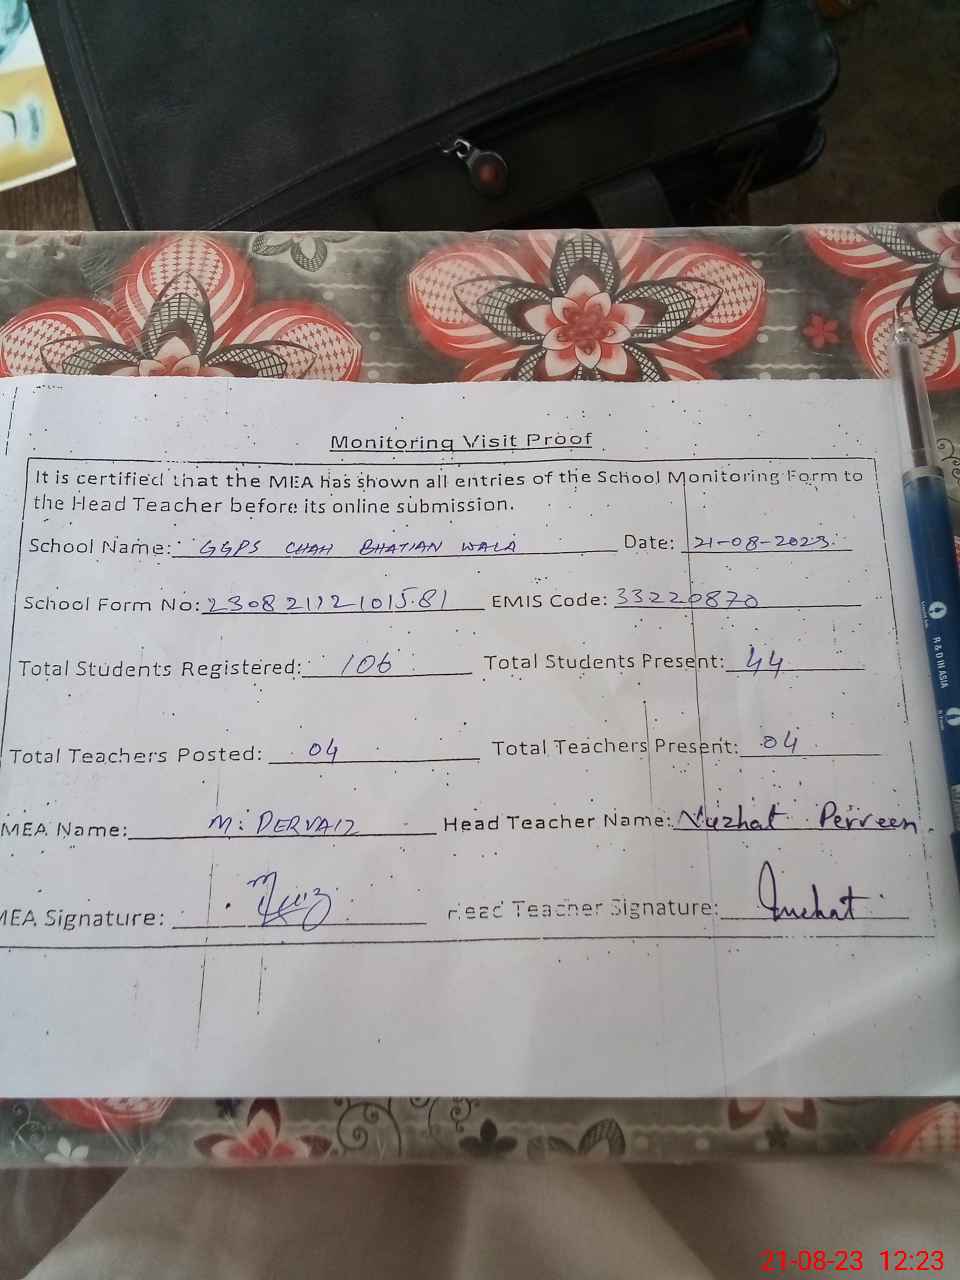 Monitoring Visit Proof
It is certified that the MEA has shown all entries of the School Monitoring Form to
the Head Teacher before its online submission.
School Name: GGPS CHAH BHATIAN WALA Date: 21-08-2023
School Form No: 23082112101581 EMIS Code: 33220870
Total Students Registered: 106 Total Students Present: 44
Total Teachers Posted: 04 Total Teachers Present: 04
MEA Name: M. PERVAIZ Head Teacher Name: Nuzhat Perveen.
MEA Signature: Head Teacher Signature: Nuzhat
R & D IN ASIA
21-08-23 12:23